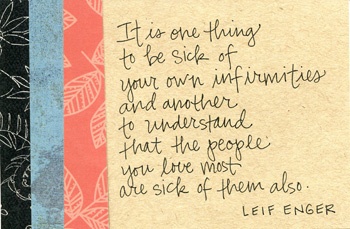 It is one thing
to be sick of
your own infirmities
and another
to understand
that the people
you love most
are sick of them also.
LEIF ENGER